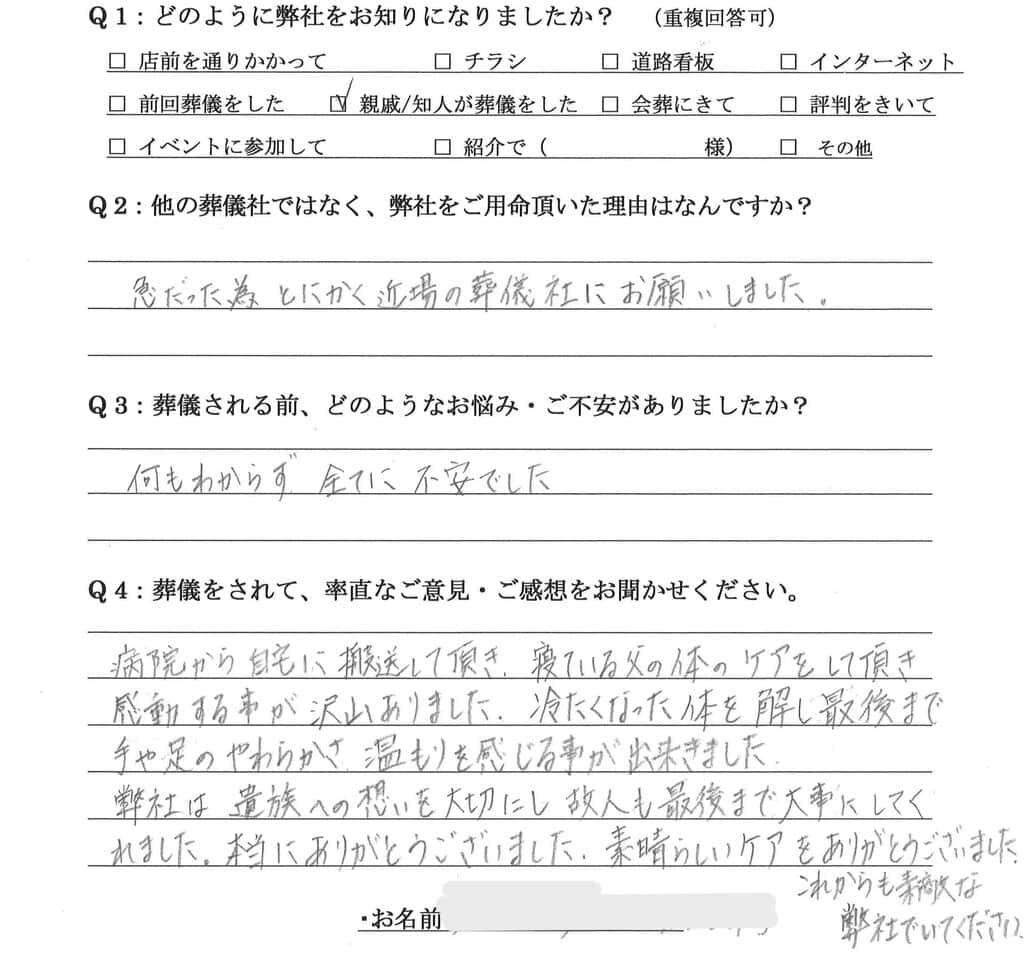 Q1：どのように弊社をお知りになりましたか？　（重複回答可）
□ 店前を通りかかって　□ チラシ　□ 道路看板　□ インターネット
□ 前回葬儀をした　☑ 親戚/知人が葬儀をした　□ 会葬にきて　□ 評判をきいて
□ イベントに参加して　□ 紹介で（　　　　　様）　□ その他
Q2：他の葬儀社ではなく、弊社をご用命頂いた理由はなんですか？
急だった為 とにかく近場の葬儀社にお願いしました。
Q3：葬儀される前、どのようなお悩み・ご不安がありましたか？
何もわからず 全てに 不安でした
Q4：葬儀をされて、率直なご意見・ご感想をお聞かせください。
病院から自宅に搬送して頂き、寝ている父の体のケアをして頂き
感動する事が沢山ありました。冷たくなった体を解し最後まで
手や足のやわらかさ 温もりを感じる事が出来きました。
弊社は遺族への想いを大切にし故人も最後まで大事にしてく
れました。本当にありがとうございました。素晴らしいケアをありがとうございました。
これからも素敵な
弊社でいてください。
・お名前